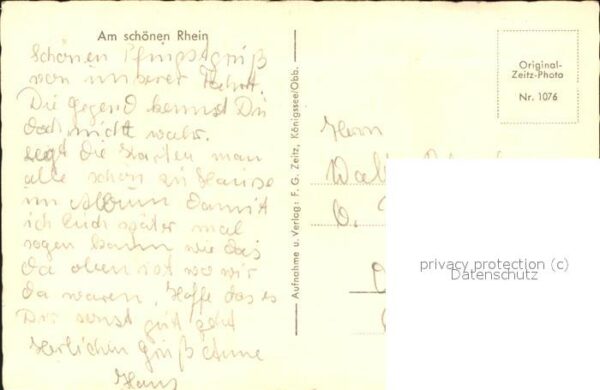 Am schönen Rhein
Schönen Pfingstgruß
von unserer Fahrt.
Die Gegend kennst Du
doch nicht wahr.
legt die Karten man
alle schön zu Hause
im Album damit
ich Euch später mal
sagen kann wie das
da oben ist wo wir
da waren. Hoffe das es
Dir sonst gut geht
Herlichen Gruß
Hans
Aufnahme u. Verlag: F. G. Zeitz, Königssee/Obb.
Original-
Zeitz-Photo
Nr. 1076
Herrn
privacy protection (c)
Datenschutz